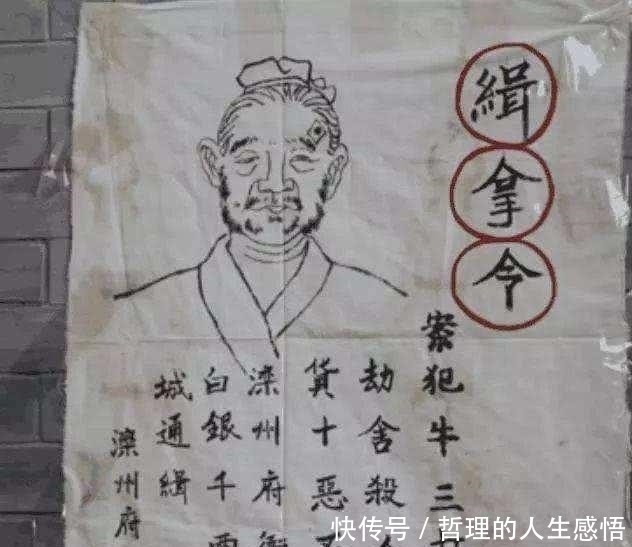 緝拿令
案犯牛三
劫舍殺
貨十惡
滦州府
白銀千
城通緝
滦州府
快传号 / 哲理的人生感悟